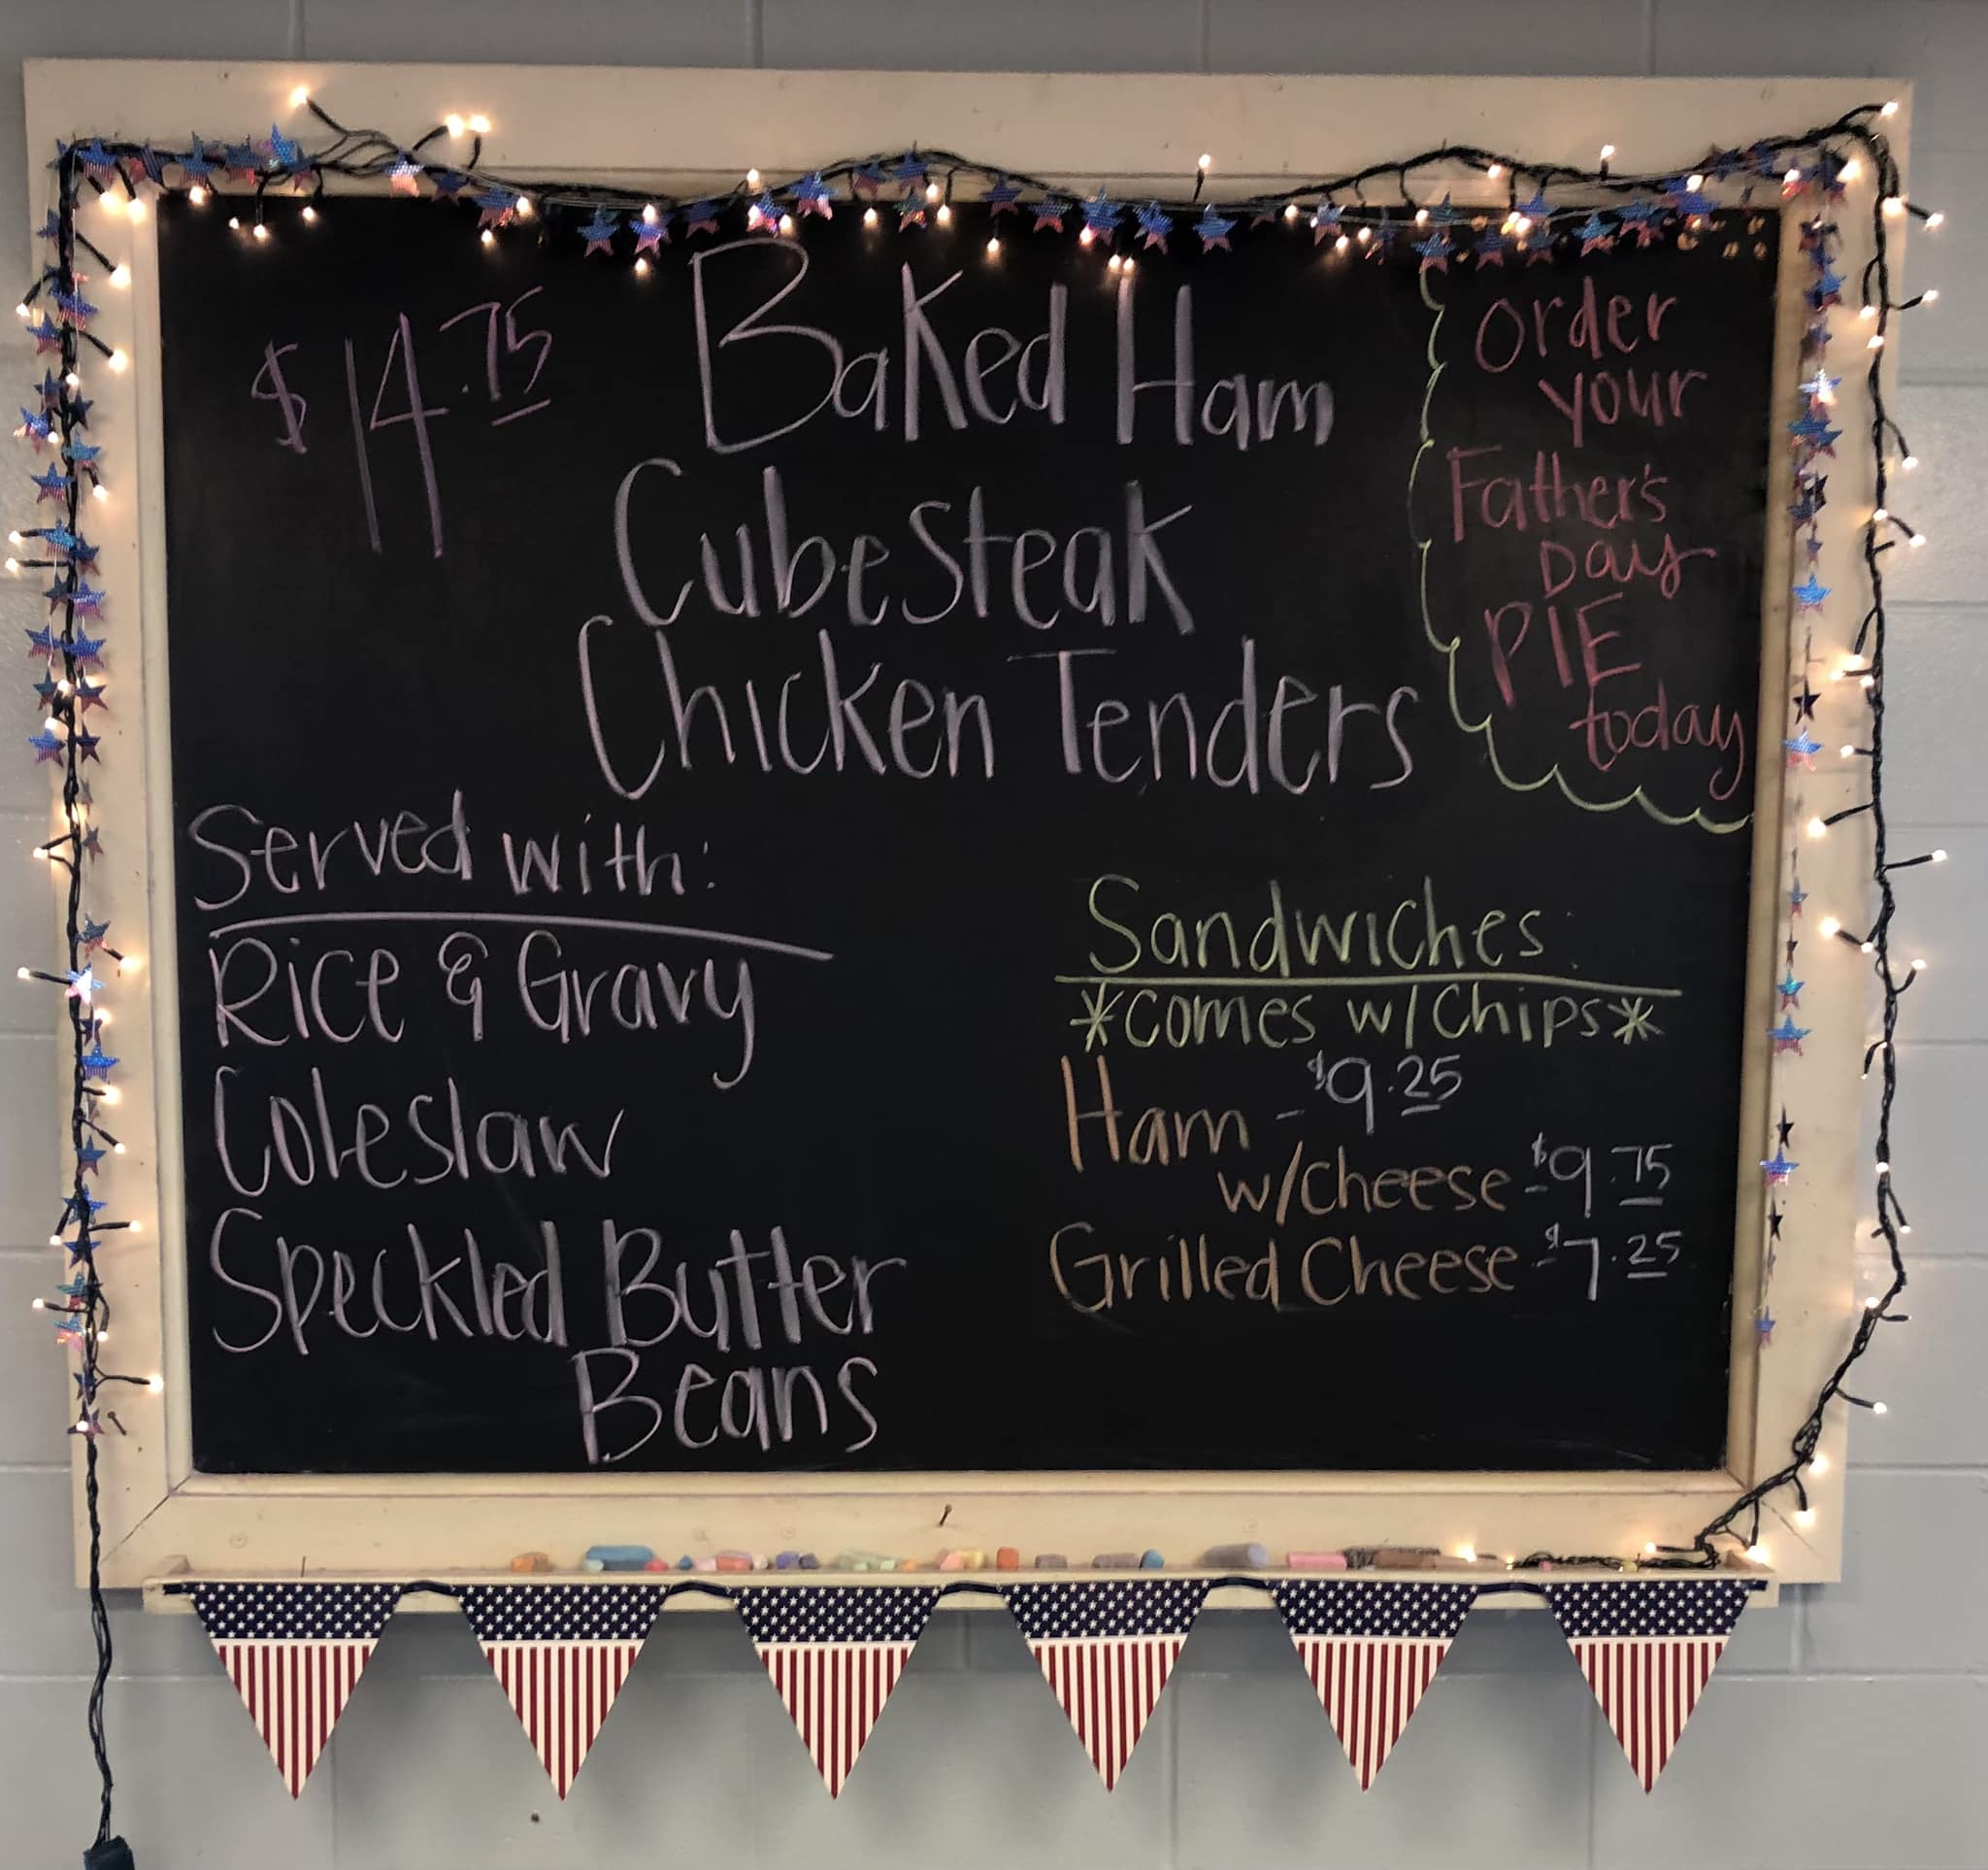 $14.75
Baked Ham
Cube Steak
Chicken Tenders
order
your
Father's
Day
PIE
today
Served with:
Rice & Gravy
Coleslaw
Speckled Butter
Beans
Sandwiches:
*Comes w/Chips*
Ham - $9.25
w/Cheese - $9.75
Grilled Cheese - $7.25